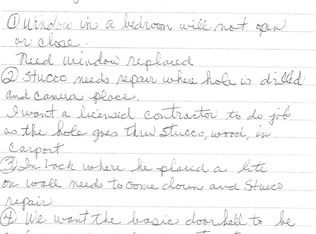 ① Window in a bedroom will not open
or close.
Need window replaced
② Stucco needs repair where hole is drilled
and camera place.
I want a licensed contractor to do job
as the hole goes thru stucco, wood, in
carport
③ In back where he placed a lite
on wall needs to come down and stucco
repair
④ We want the basic doorbell to be